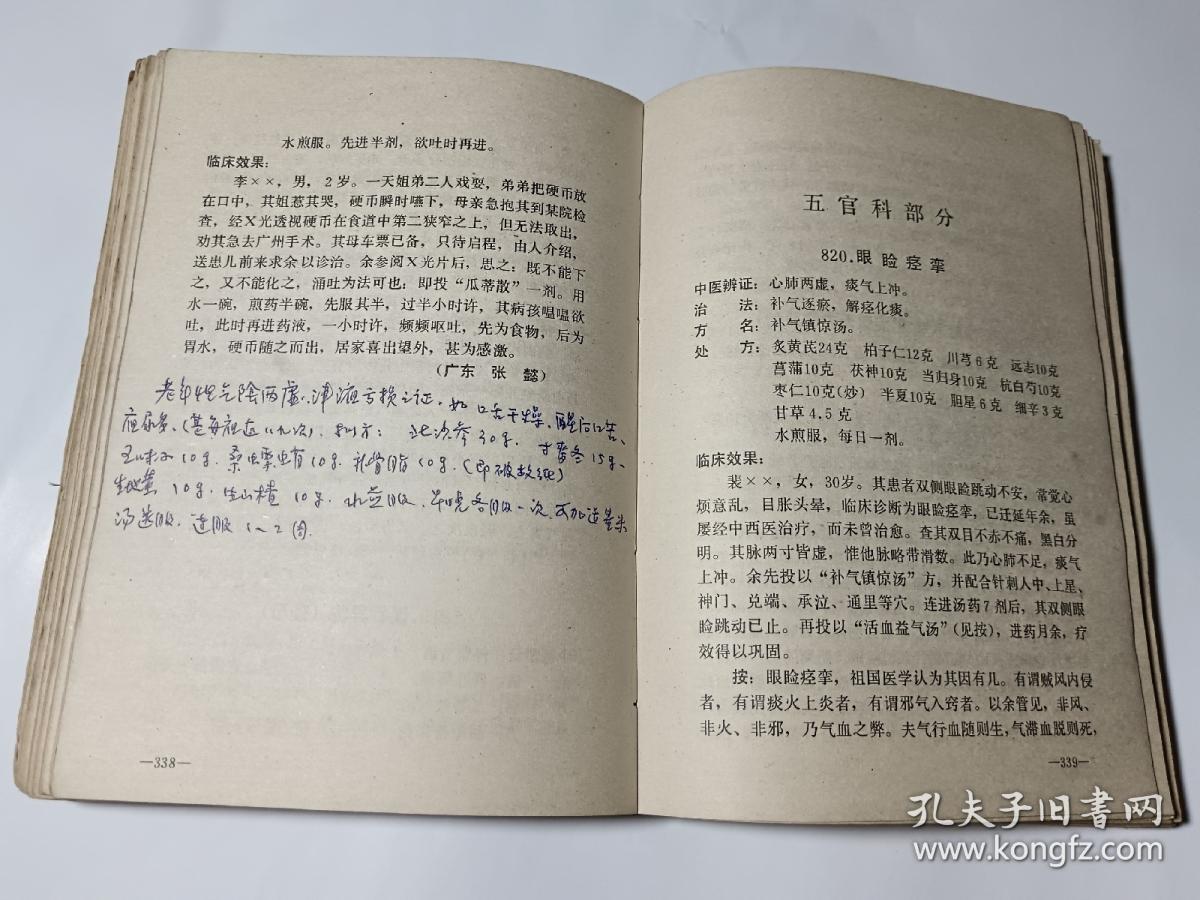 水煎服。先进半剂，欲吐时再进。
临床效果：
李××，男，2岁。一天姐弟二人戏耍，弟弟把硬币放
在口中，其姐惹其哭，硬币瞬时嚥下，母亲急抱其到某院检
查，经X光透视硬币在食道中第二狭窄之上，但无法取出，
劝其急去广州手术。其母车票已备，只待启程，由人介绍，
送患儿前来求余以诊治。余参阅X光片后，思之：既不能下
之，又不能化之，涌吐为法可也：即投“瓜蒂散”一剂。用
水一碗，煎药半碗，先服其半，过半小时许，其病孩嗢嗢欲
吐，此时再进药液，一小时许，频频呕吐，先为食物，后为
胃水，硬币随之而出，居家喜出望外，甚为感激。
（广东 张 懿）
老年性气阴两虚、津液亏损之证，如口舌干燥、醒后口苦、
夜尿多、（甚每夜达八九次）。 方：北沙参30g. 寸麦冬15g、
五味子10g. 桑虫 10g. 补骨脂10g.（即破故纸）
生地黄10g. 生山楂10g. 水煎服、早晚各服一次、可加
汤送服. 连服1～2周.
—338—
五官科部分
820.眼睑痉挛
中医辨证：心肺两虚，痰气上冲。
治 法：补气逐瘀，解痉化痰。
方 名：补气镇惊汤。
处 方：炙黄芪24克 柏子仁12克 川芎6克 远志10克
菖蒲10克 茯神10克 当归身10克 杭白芍10克
枣仁10克(妙) 半夏10克 胆星6克 细辛3克
甘草4.5克
水煎服，每日一剂。
临床效果：
裴××，女，30岁。其患者双侧眼睑跳动不安，常觉心
烦意乱，目胀头晕，临床诊断为眼睑痉挛，已迁延年余，虽
屡经中西医治疗，而未曾治愈。查其双目不赤不痛，黑白分
明。其脉两寸皆虚，惟他脉略带滑数。此乃心肺不足，痰气
上冲。余先投以“补气镇惊汤”方，并配合针刺人中、上星、
神门、兑端、承泣、通里等穴。连进汤药7剂后，其双侧眼
睑跳动已止。再投以“活血益气汤”（见按），进药月余，疗
效得以巩固。
按：眼睑痉挛，祖国医学认为其因有几。有谓贼风内侵
者，有谓痰火上炎者，有谓邪气入窍者。以余管见，非风、
非火、非邪，乃气血之弊。夫气行血随则生，气滞血脱则死，
—339—
孔夫子旧书网
www.kongfz.com